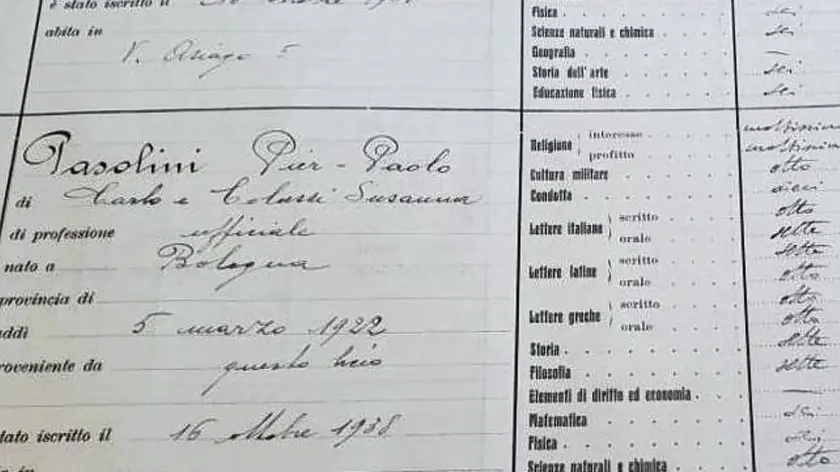 è stato iscritto il
abita in
V. Asiago 5
Fisica
Scienze naturali e chimica sei
Geografia —
Storia dell'arte sei
Educazione fisica sei
Pasolini Pier-Paolo
di Carlo e Colussi Susanna
di professione ufficiale
nato a Bologna
provincia di
addì 5 marzo 1922
proveniente da questo liceo
stato iscritto il 16 ottobre 1938
Religione interesse moltissimo
profitto moltissimo
Cultura militare otto
Condotta dieci
Lettere italiane scritto otto
orale sette
Lettere latine scritto sette
orale otto
Lettere greche scritto otto
orale otto
Storia sette
Filosofia sette
Elementi di diritto ed economia —
Matematica sei
Fisica sei
Scienze naturali e chimica otto